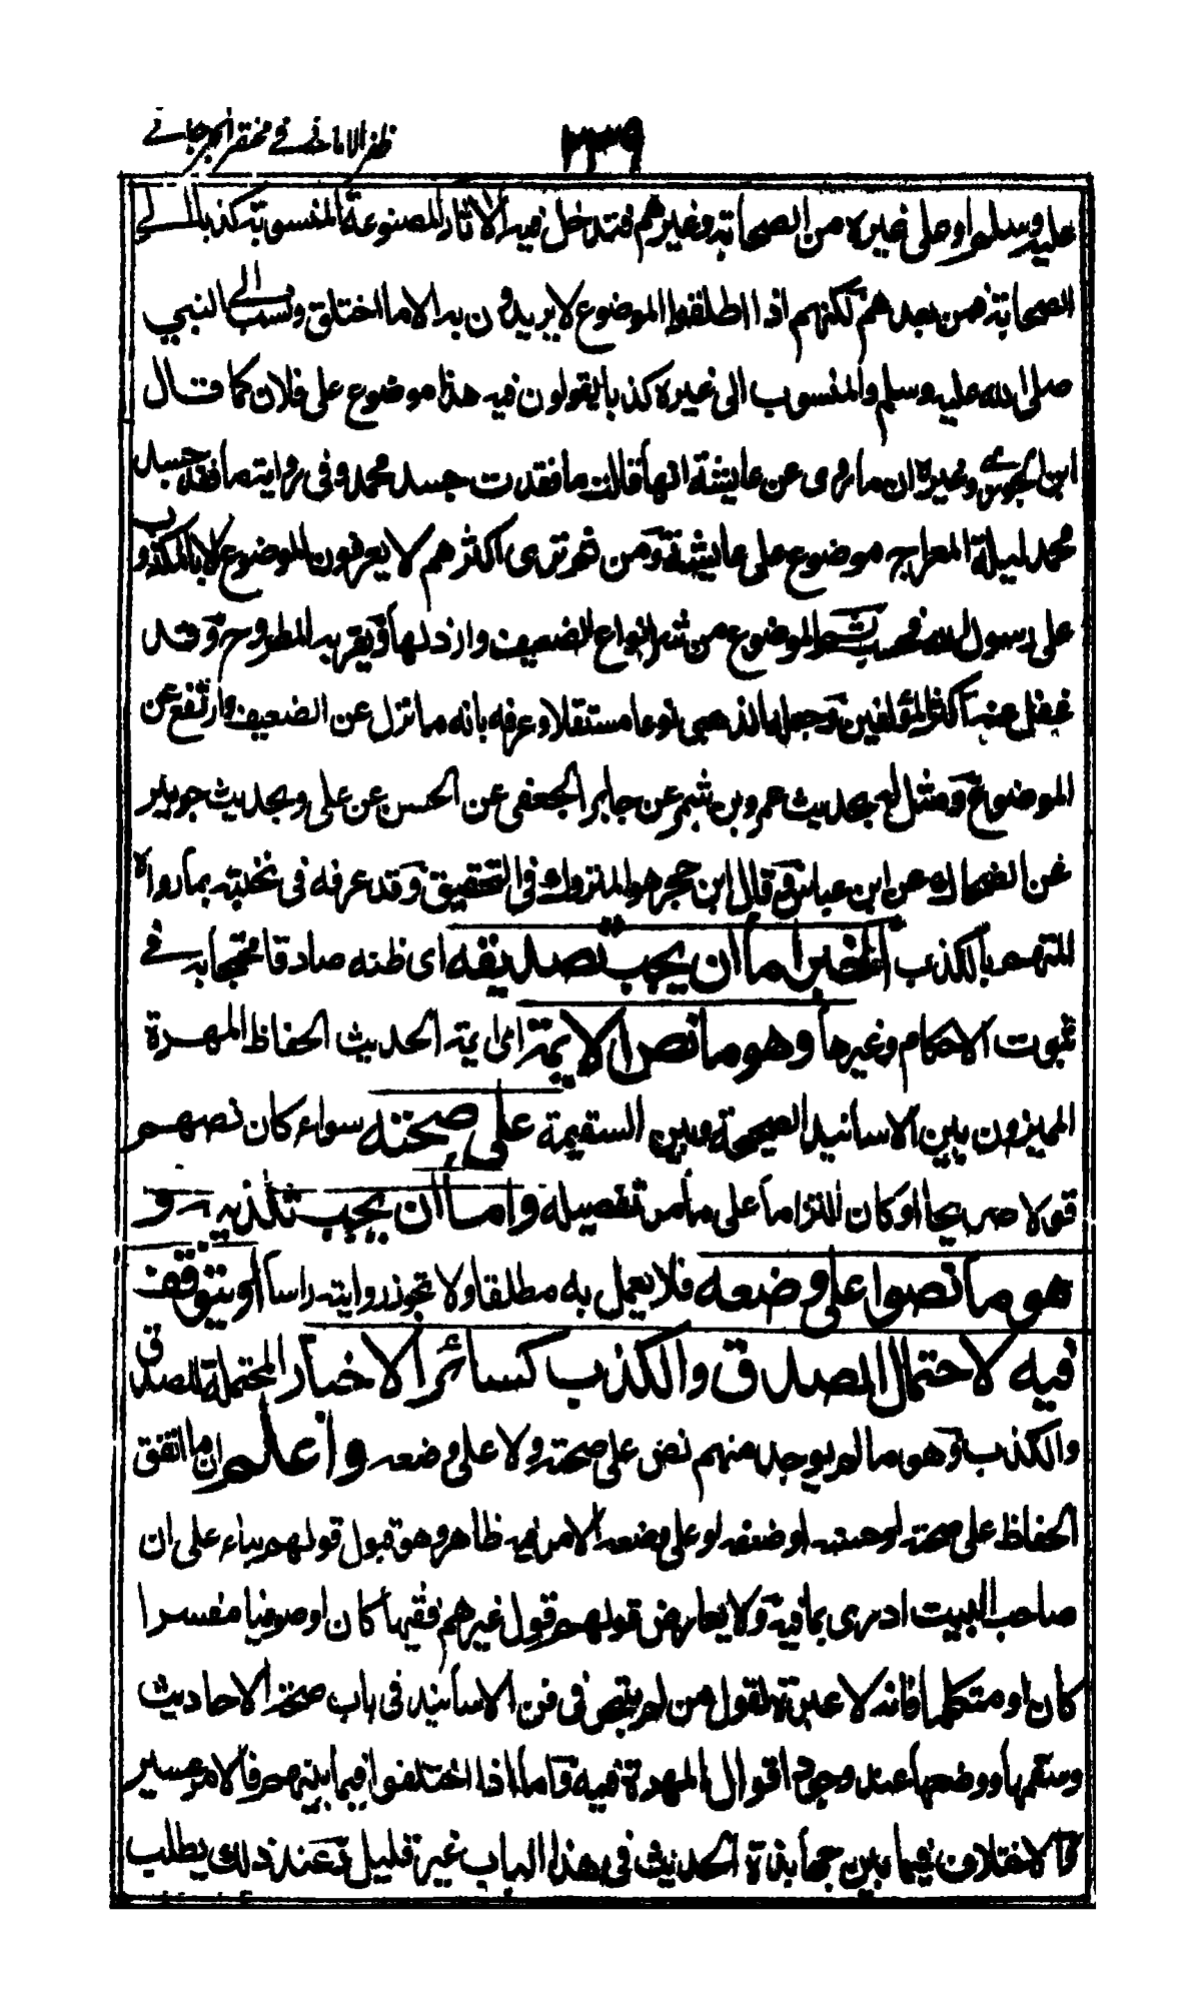 ظفر الاماني في مختصر الجرجاني
٢٣٩
عليه وسلم او صلى غيره من الصحابة وغيرهم فتدخل فيه الآثار المصنوعة المنسوبة كذبا الى
الصحابة فمن بعدهم لكنهم اذا اطلقوا الموضوع لا يريدون به الا ما اختلق ونسب الى النبي
صلى الله عليه وسلم والمنسوب الى غيره كذبا يقولون فيه هذا موضوع على فلان كما قال
ابن الجوزي وغيره ان ما روى عن عايشة انها قالت ما فقدت جسد محمد وفى رواية ما فقد جسد
محمد ليلة المعراج موضوع على عايشة ومن ثم ترى اكثرهم لا يعرفون الموضوع الا بالمكذوب
على رسول الله فحسب ثم الموضوع من شر انواع الضعيف وارذلها ويقربه المطروح وقد
غفل عنه اكثر المؤلفين وجعله الذهبى نوعا مستقلا وعرفه بانه ما نزل عن الضعيف وارتفع عن
الموضوع ومثل له بحديث عمرو بن شمر عن جابر الجعفى عن الحسن عن على وبحديث جويبر
عن الضحاك عن ابن عباس قال ابن حجر هو المتروك فى التحقيق وقد عرفه فى نخبته بما رواه
المتهم بالكذب الخبر اما ان يجب تصديقه اى ظنه صادقا محتجا به في
ثبوت الاحكام وغيرها وهو ما نص الايمة اى ايمة الحديث الحفاظ المهرة
المميزون بين الاسانيد الصحيحة وبين السقيمة على صحته سواء كان نصهم
قولا صريحا او كان التزاما على ما مر تفصيله واما ان يجب تكذيبه و
هو ما نصوا على وضعه فلا يعمل به مطلقا ولا تجوز روايته راسا او يتوقف
فيه لاحتمال الصدق والكذب كسائر الاخبار المحتملة للصدق
والكذب وهو ما لم يوجد منهم نص على صحته ولا على وضعه واعلم ان ما اتفق
الحفاظ على صحته او حسنه او ضعفه او على وضعه الامر فيه ظاهر وهو قبول قولهم بناء على ان
صاحب البيت ادرى بما فيه ولا يعارض قولهم قول غيرهم فقيها كان او صوفيا مفسرا
كان او متكلما فانه لا عبرة لقول من لم يتبحر فى فن الاسانيد فى باب صحة الاحاديث
وسقمها ووضعها عند وجود اقوال المهرة فيه واما اذا اختلفوا فيما بينهم فالامر عسير
والاختلاف فيما بين جهابذة الحديث فى هذا الباب غير قليل فعند ذلك يطلب